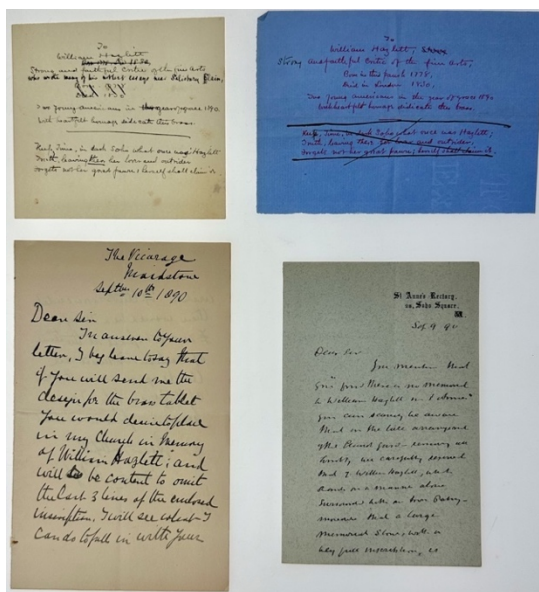 To
William Hazlitt
Strong and faithful Critic of the fine Arts
who wrote many of his ablest essays near Salisbury Plain,
Two young americans in the year of grace 1890.
With heartfelt homage dedicate this brass.
Keep, Time, in dark Soho what once was Hazlitt
Truth, leaving there her love and outrider
forgets not her great pawn; herself shall claim it
To
William Hazlitt,
Strong and faithful Critic of the fine Arts,
Born in this parish 1778,
Died in London 1830,
Two young Americans in the year of grace 1890
With heartfelt homage dedicate this brass.
Keep, Time, in dark Soho what once was Hazlitt;
Truth, leaving there her love and outrider,
forgets not her great pawn; herself shall claim it.
The Vicarage
Maidstone
Septbr 10th 1890
Dear Sir
In answer to your
letter, I beg leave to say that
if you will send me the
design for the brass tablet
you would desire to place
in my Church in memory
of William Hazlitt; and
will be content to omit
the last 3 lines of the enclosed
inscription, I will see what I
can do to fall in with your
St Anne's Rectory,
Soho Square,
W.
Sep 9 90
Dear Sir
You mention that
you find there is no memorial
to William Hazlitt in S. Anne's
You can scarcely be aware
that in the late arrangement
of the Church yard
we carefully preserved
that of William Hazlitt, which
stands in a manner alone
that a large
Memorial Stone, with a
very full inscription, is